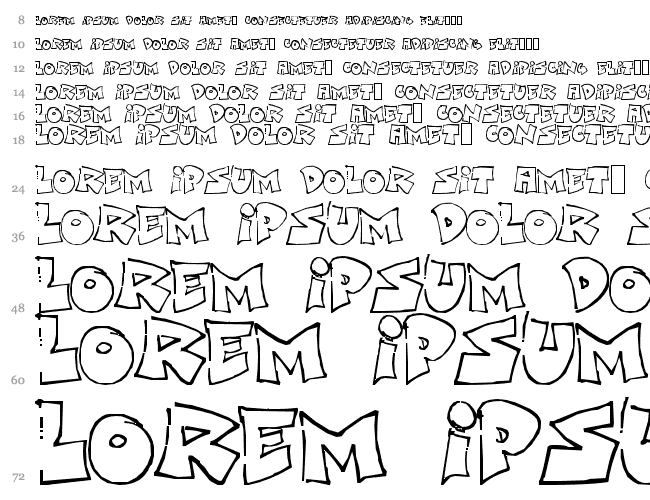 8 LOREM iPSUM DOLOR SiT AMET▯ CONSECTETUER ADiPiSCiNG ELiT▯▯▯
10 LOREM iPSUM DOLOR SiT AMET▯ CONSECTETUER ADiPiSCiNG ELiT▯▯▯
12 LOREM iPSUM DOLOR SiT AMET▯ CONSECTETUER ADiPiSCiNG ELiT▯▯
14 LOREM iPSUM DOLOR SiT AMET▯ CONSECTETUER ADiPiSC
16 LOREM iPSUM DOLOR SiT AMET▯ CONSECTETUER AD
18 LOREM iPSUM DOLOR SiT AMET▯ CONSECTETU
24 LOREM iPSUM DOLOR SiT AMET▯ C
36 LOREM iPSUM DOLOR S
48 LOREM iPSUM DO
60 LOREM iPSUM
72 LOREM iPSU